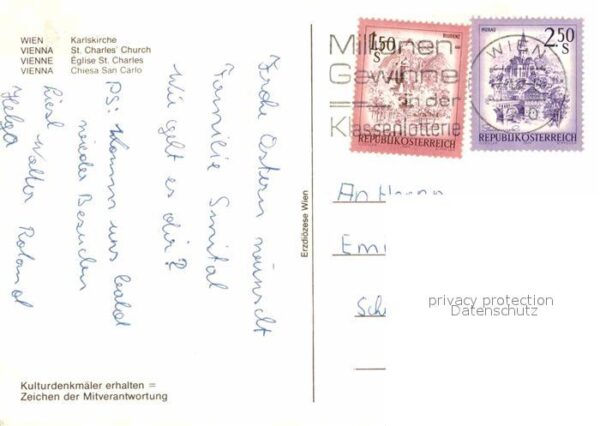 WIEN Karlskirche
VIENNA St. Charles' Church
VIENNE Église St. Charles
VIENNA Chiesa San Carlo
Frohe Ostern wünscht
Familie Smital
Wie geht es dir?
PS: Komm uns bald
wieder besuchen
Liesl Walter Roland
Helga
Kulturdenkmäler erhalten =
Zeichen der Mitverantwortung
Erzdiözese Wien
Millionen-
Gewinne
in der
Klassenlotterie
1.50 S
BLUDENZ
REPUBLIK ÖSTERREICH
2.50 S
MURAU
REPUBLIK ÖSTERREICH
WIEN
An
Em
Sch
privacy protection
Datenschutz